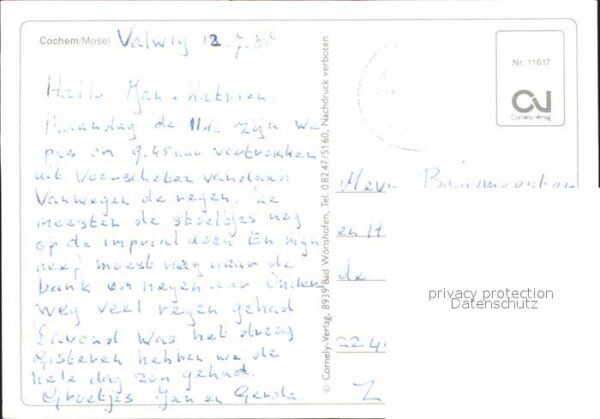 Cochem/Mosel Valwig 12.7.
Hallo Jan + Katrien.
Maandag de 11de zijn we
pas om 9.45 uur vertrokken
uit vandaan
Vanwegen de regen. We
moesten de stoeltjes nog
op de imperial doen En mijn
neef moest nog naar de
bank om negen uur Onder
weg veel regen gehad
S'avond was het droog
Gisteren hebben we de
hele dag zon gehad.
Groetjes Jan en Gerda.
© Cornely-Verlag, 8939 Bad Wörishofen, Tel. 08247/5160, Nachdruck verboten
Nr. 11617
Cornely-Verlag
en H
de
Z
privacy protection
Datenschutz